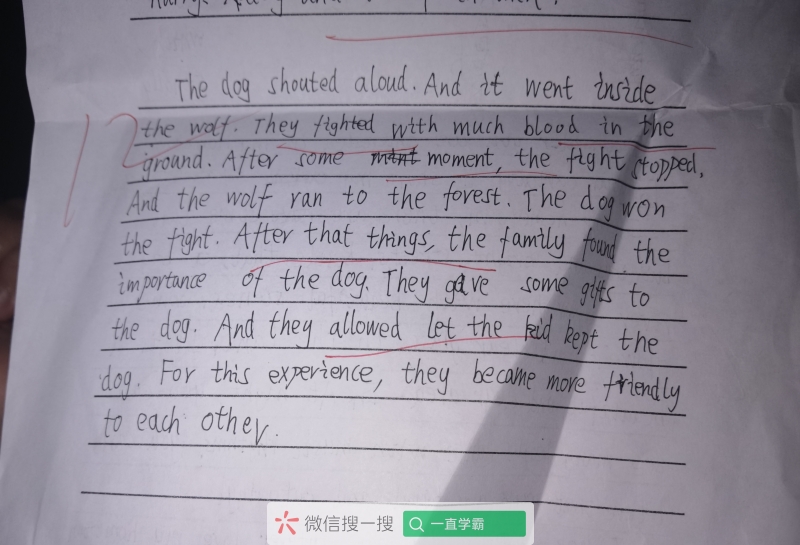 The dog shouted aloud. And it went inside
the wolf. They fighted with much blood in the
ground. After some moment, the fight stopped.
And the wolf ran to the forest. The dog won
the fight. After that things, the family found the
importance of the dog. They gave some gifts to
the dog. And they allowed let the kid kept the
dog. For this experience, they became more friendly
to each other.
12
微信搜一搜 一直学霸